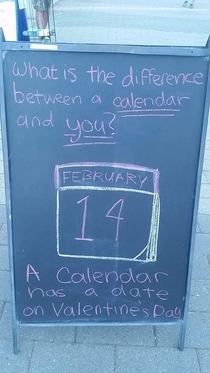 What is the difference
between a calendar
and you?
FEBRUARY
14
A Calendar
has a date
on Valentine's Day